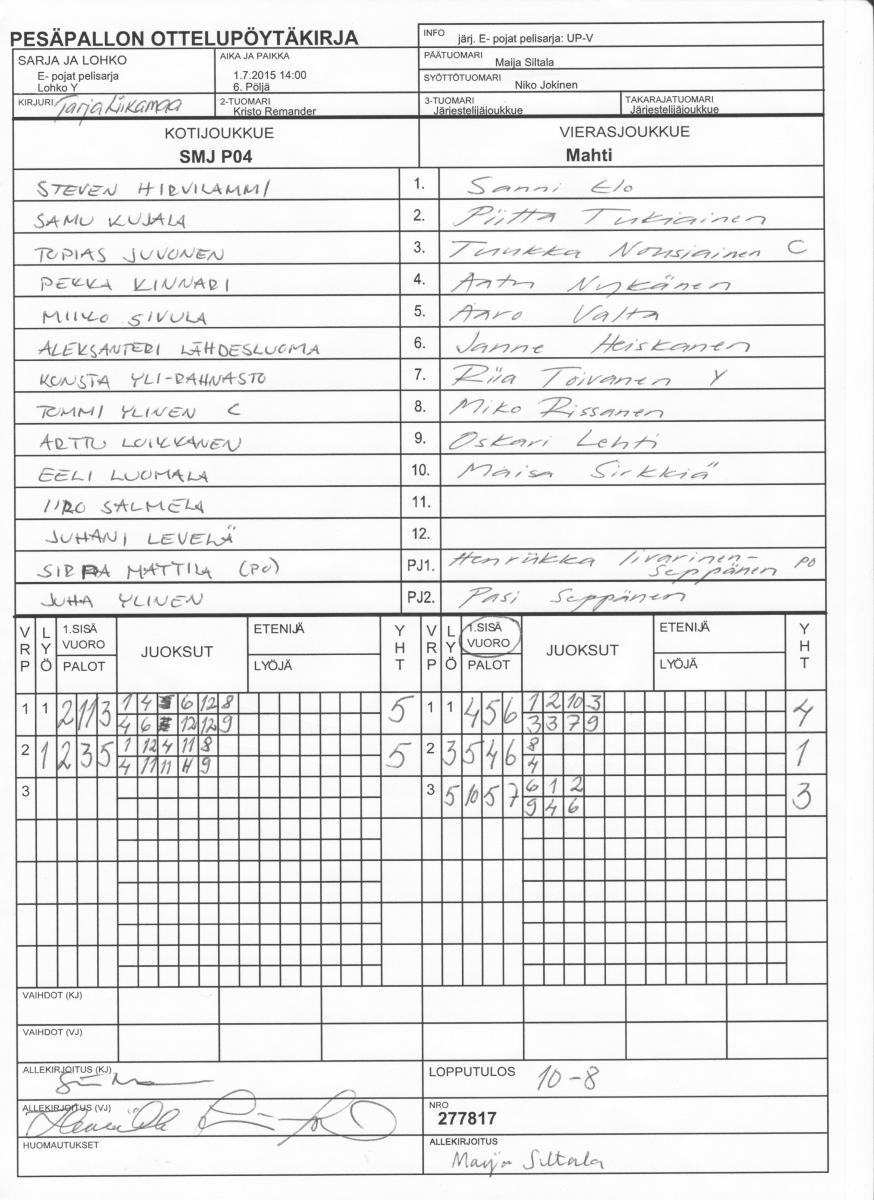 PESÄPALLON OTTELUPÖYTÄKIRJA
INFO järj. E- pojat pelisarja: UP-V
SARJA JA LOHKO
E- pojat pelisarja
Lohko Y
AIKA JA PAIKKA
1.7.2015 14:00
6. Pöljä
PÄÄTUOMARI
Maija Siltala
SYÖTTÖTUOMARI
Niko Jokinen
KIRJURI Tarja Liikamaa
2-TUOMARI
Kristo Remander
3-TUOMARI
Järjestelijäjoukkue
TAKARAJATUOMARI
Järjestelijäjoukkue
KOTIJOUKKUE VIERASJOUKKUE
SMJ P04 Mahti
STEVEN HIRVILAMMI 1. Sanni Elo
SAMU KUJALA 2. Piitta Tukiainen
TOPIAS JUVONEN 3. Tuukka Nousiainen C
PEKKA KINNARI 4. Aatu Nykänen
MIIKO SIVULA 5. Aaro Valta
ALEKSANTERI LÄHDESLUOMA 6. Janne Heiskanen
KONSTA YLI-RAHNASTO 7. Riia Toivanen Y
TOMMI YLINEN C 8. Miko Rissanen
ARTTU LOIKKANEN 9. Oskari Lehti
EELI LUOMALA 10. Maisa Sirkkiä
IIRO SALMELA 11.
JUHANI LEVELÄ 12.
SIRPA MATTILA (PO) PJ1. Henriikka Iivarinen-Seppänen PO
JUHA YLINEN PJ2. Pasi Seppänen
VRP LYÖ 1.SISÄ VUORO PALOT JUOKSUT ETENIJÄ LYÖJÄ YHT VRP LYÖ 1.SISÄ VUORO PALOT JUOKSUT ETENIJÄ LYÖJÄ YHT
1 1 2 11 3 1 4 6 12 8 5 1 1 4 5 6 1 2 10 3 4
4 6 12 12 9 3 3 7 9
2 1 2 3 5 1 12 4 11 8 5 2 3 5 4 6 8 1
4 11 11 4 9 4
3 3 5 10 5 7 6 1 2 3
9 4 6
VAIHDOT (KJ)
VAIHDOT (VJ)
ALLEKIRJOITUS (KJ)
LOPPUTULOS 10-8
ALLEKIRJOITUS (VJ)
NRO
277817
HUOMAUTUKSET
ALLEKIRJOITUS
Maija Siltala